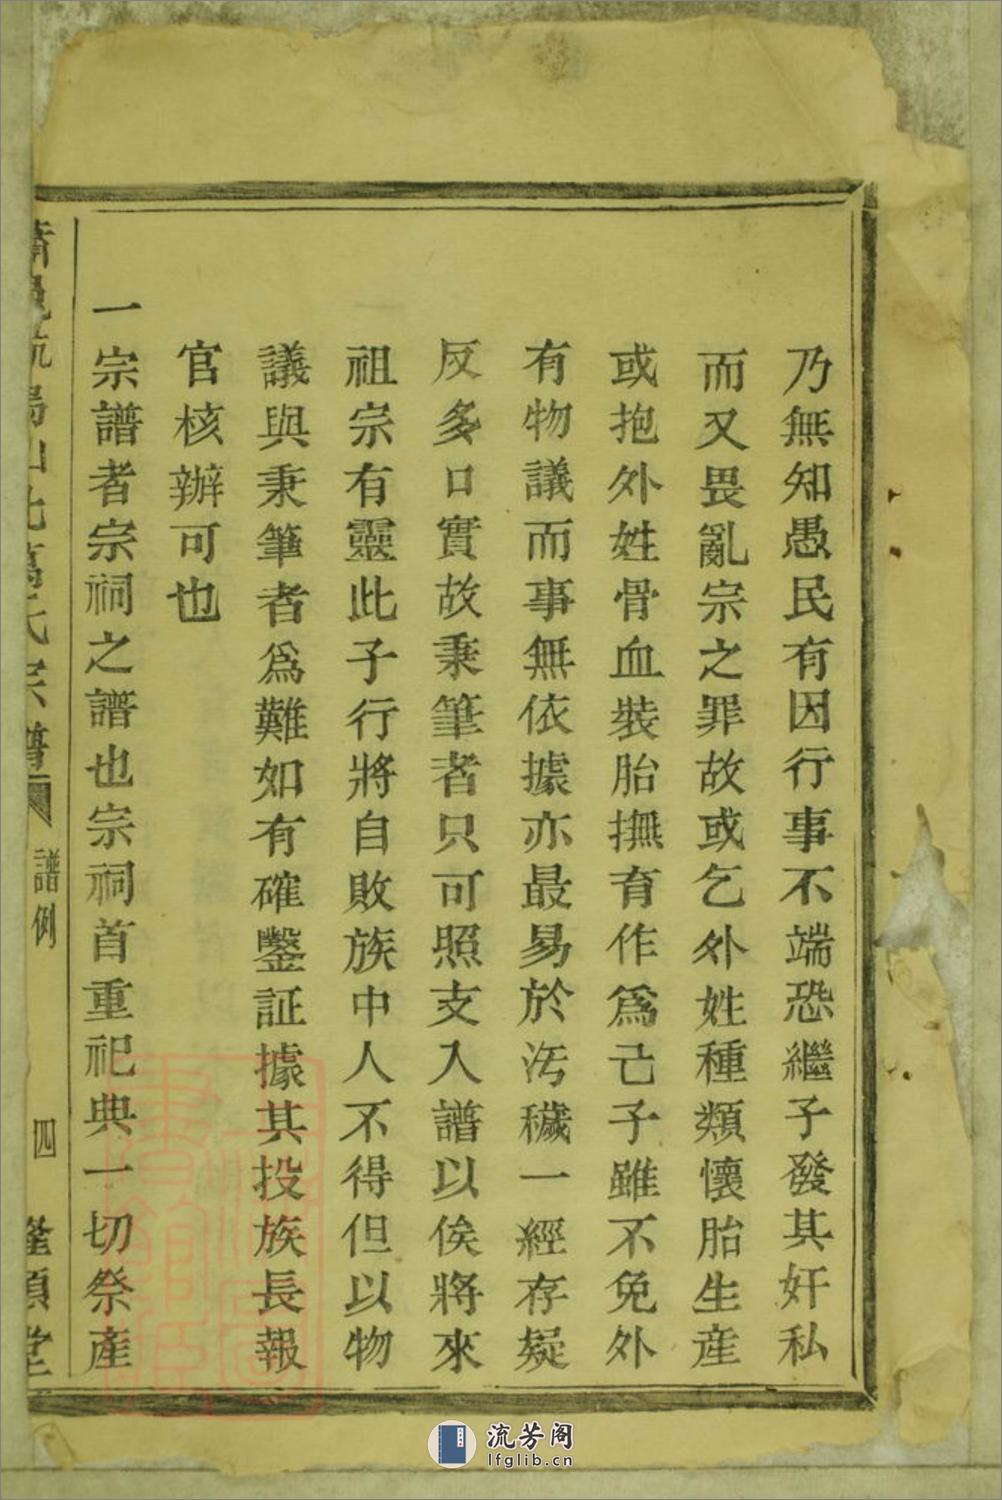 乃無知愚民有因行事不端恐繼子發其奸私
而又畏亂宗之罪故或乞外姓種類懷胎生産
或抱外姓骨血裝胎撫育作爲己子雖不免外
有物議而事無依據亦最易於汚穢一經存疑
反多口實故秉筆者只可照支入譜以俟將來
祖宗有靈此子行將自敗族中人不得但以物
議與秉筆者爲難如有確鑿証據其投族長報
官核辦可也
一宗譜者宗祠之譜也宗祠首重祀典一切祭產
山北葛氏宗譜
譜例
四
堂
流芳阁
lfglib.cn